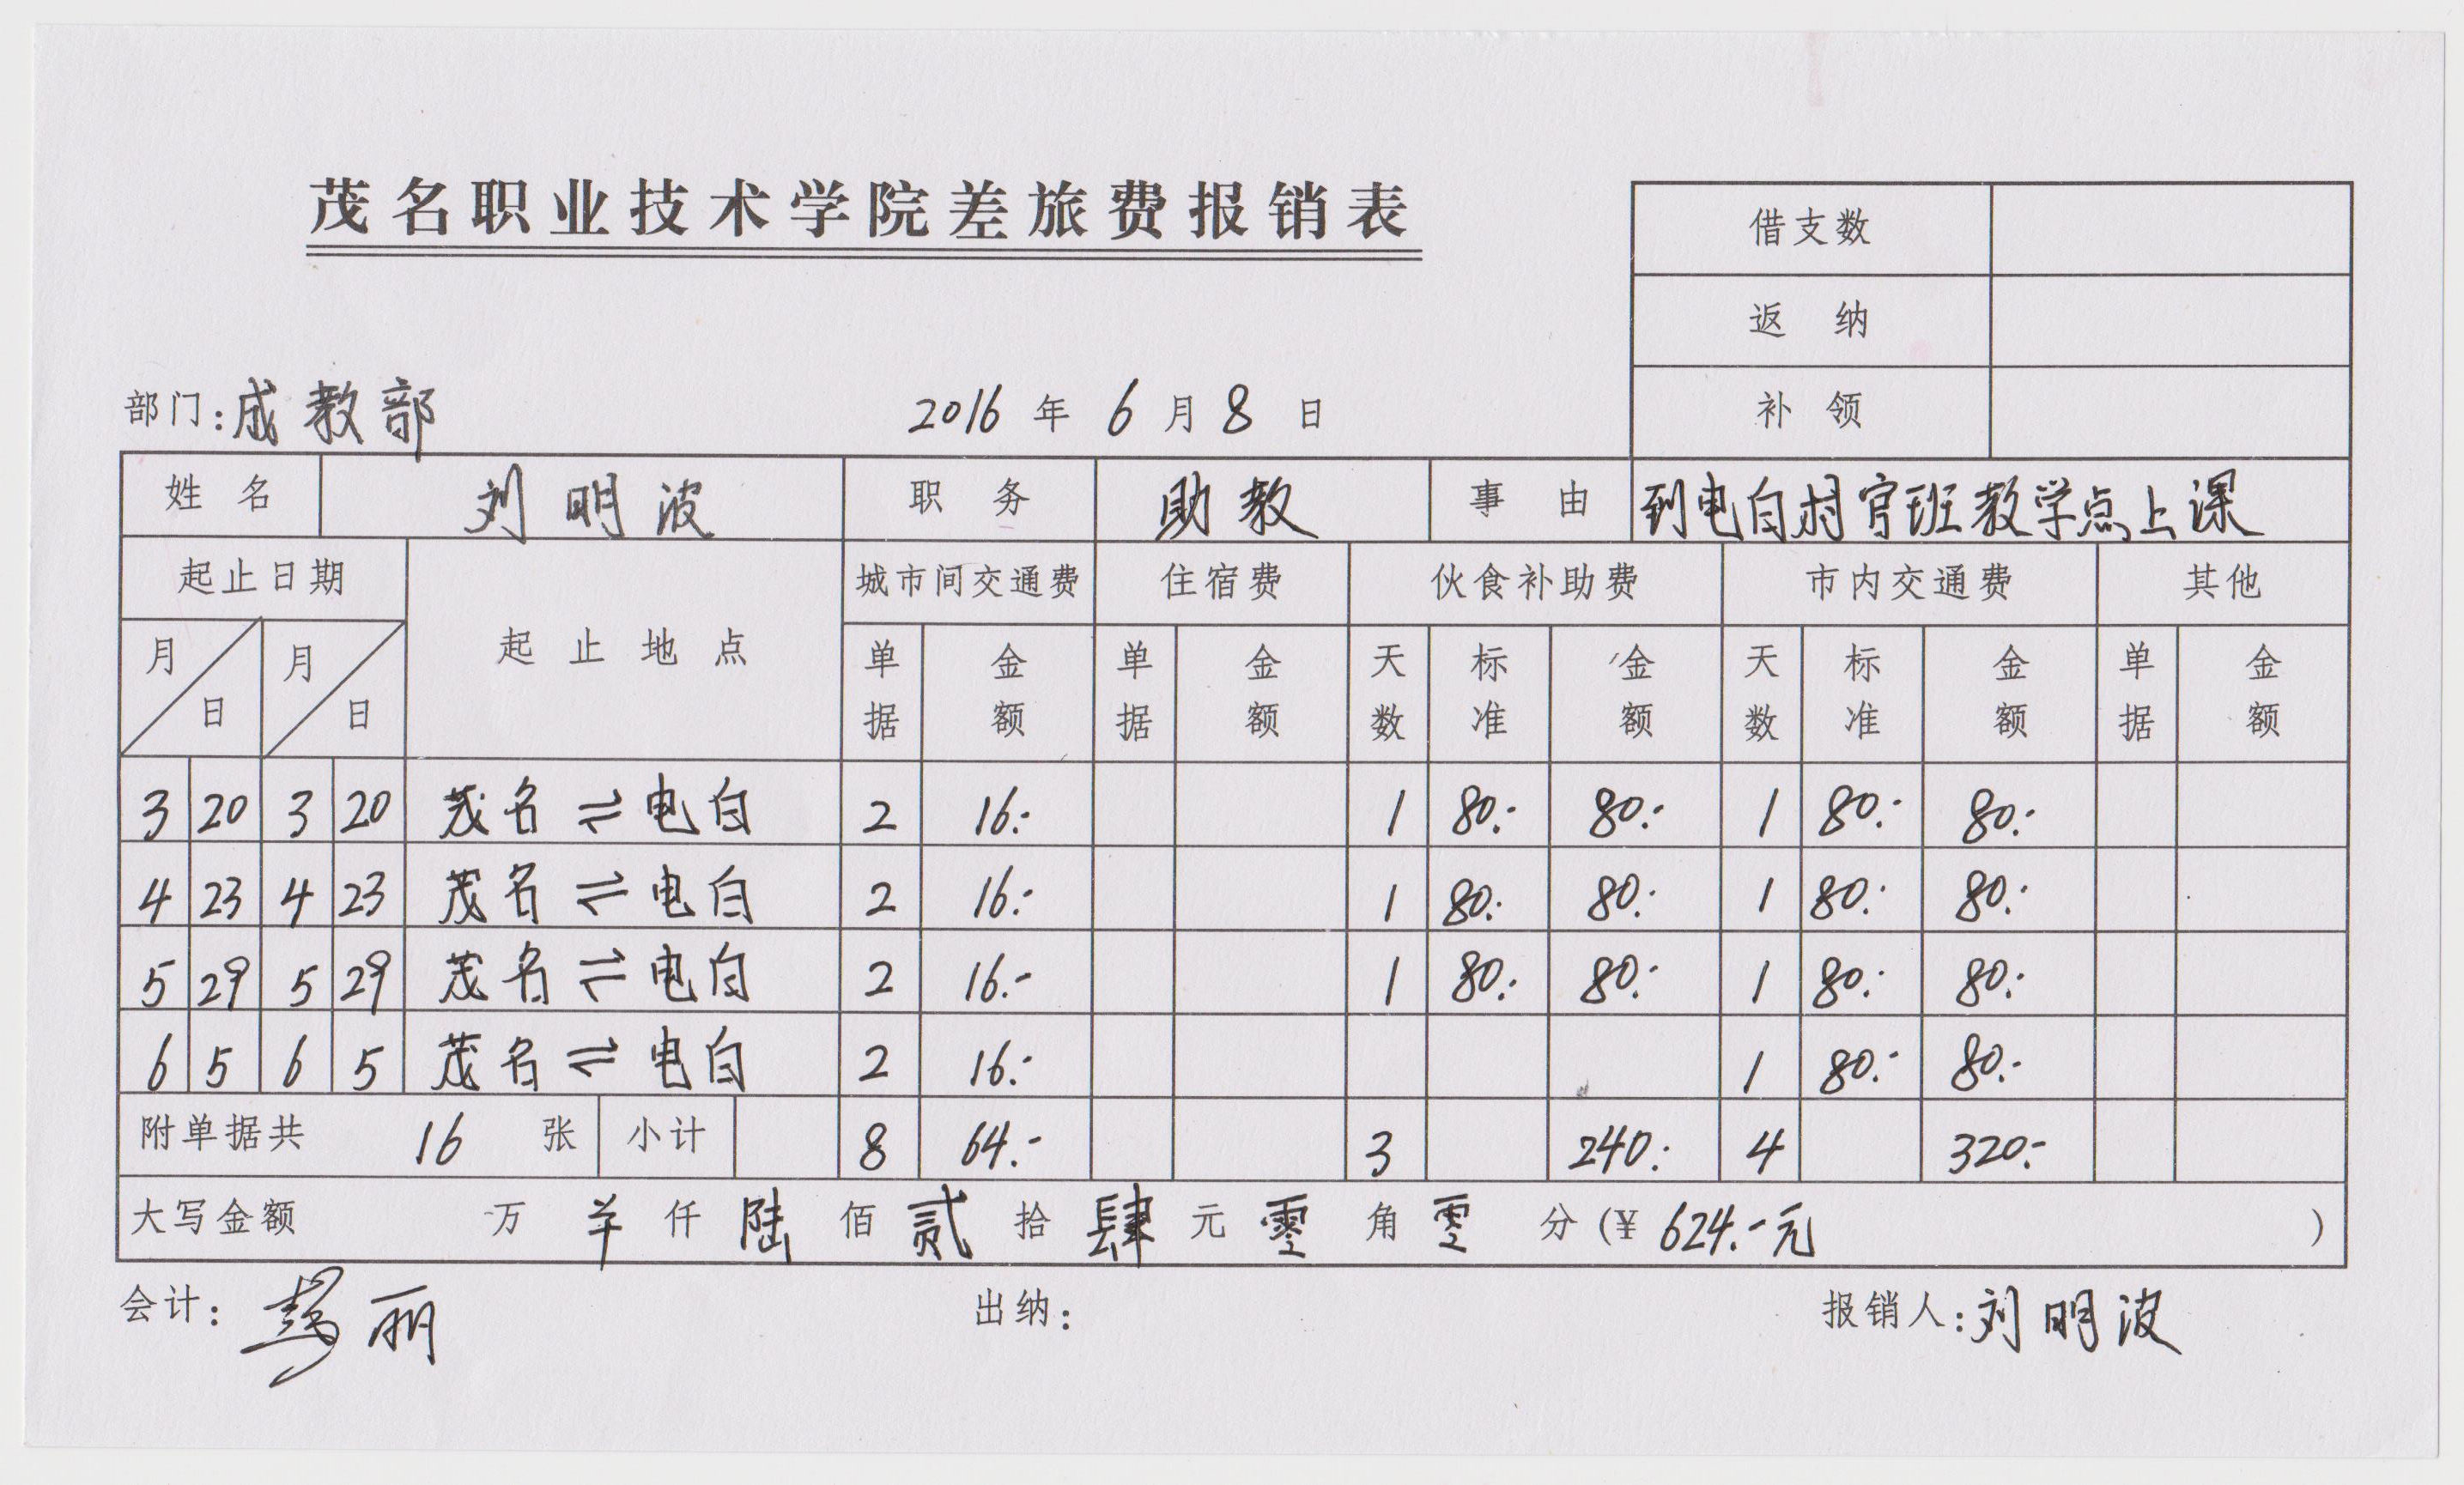 茂名职业技术学院差旅费报销表
借支数
返 纳
补 领
部门:成教部 2016 年 6 月 8 日
姓 名 刘明波 职 务 助教 事 由 到电白村官班教学点上课
起止日期 起止地点 城市间交通费 住宿费 伙食补助费 市内交通费 其他
月 日 月 日 单据 金额 单据 金额 天数 标准 金额 天数 标准 金额 单据 金额
3 20 3 20 茂名 ⇌ 电白 2 16.- 1 80.- 80.- 1 80.- 80.-
4 23 4 23 茂名 ⇌ 电白 2 16.- 1 80.- 80.- 1 80.- 80.-
5 29 5 29 茂名 ⇌ 电白 2 16.- 1 80.- 80.- 1 80.- 80.-
6 5 6 5 茂名 ⇌ 电白 2 16.- 1 80.- 80.-
附单据共 16 张 小计 8 64.- 3 240.- 4 320.-
大写金额 万 ¥ 仟 陆 佰 贰 拾 肆 元 零 角 零 分 (¥ 624.-元 )
会计: 丽 出纳: 报销人:刘明波